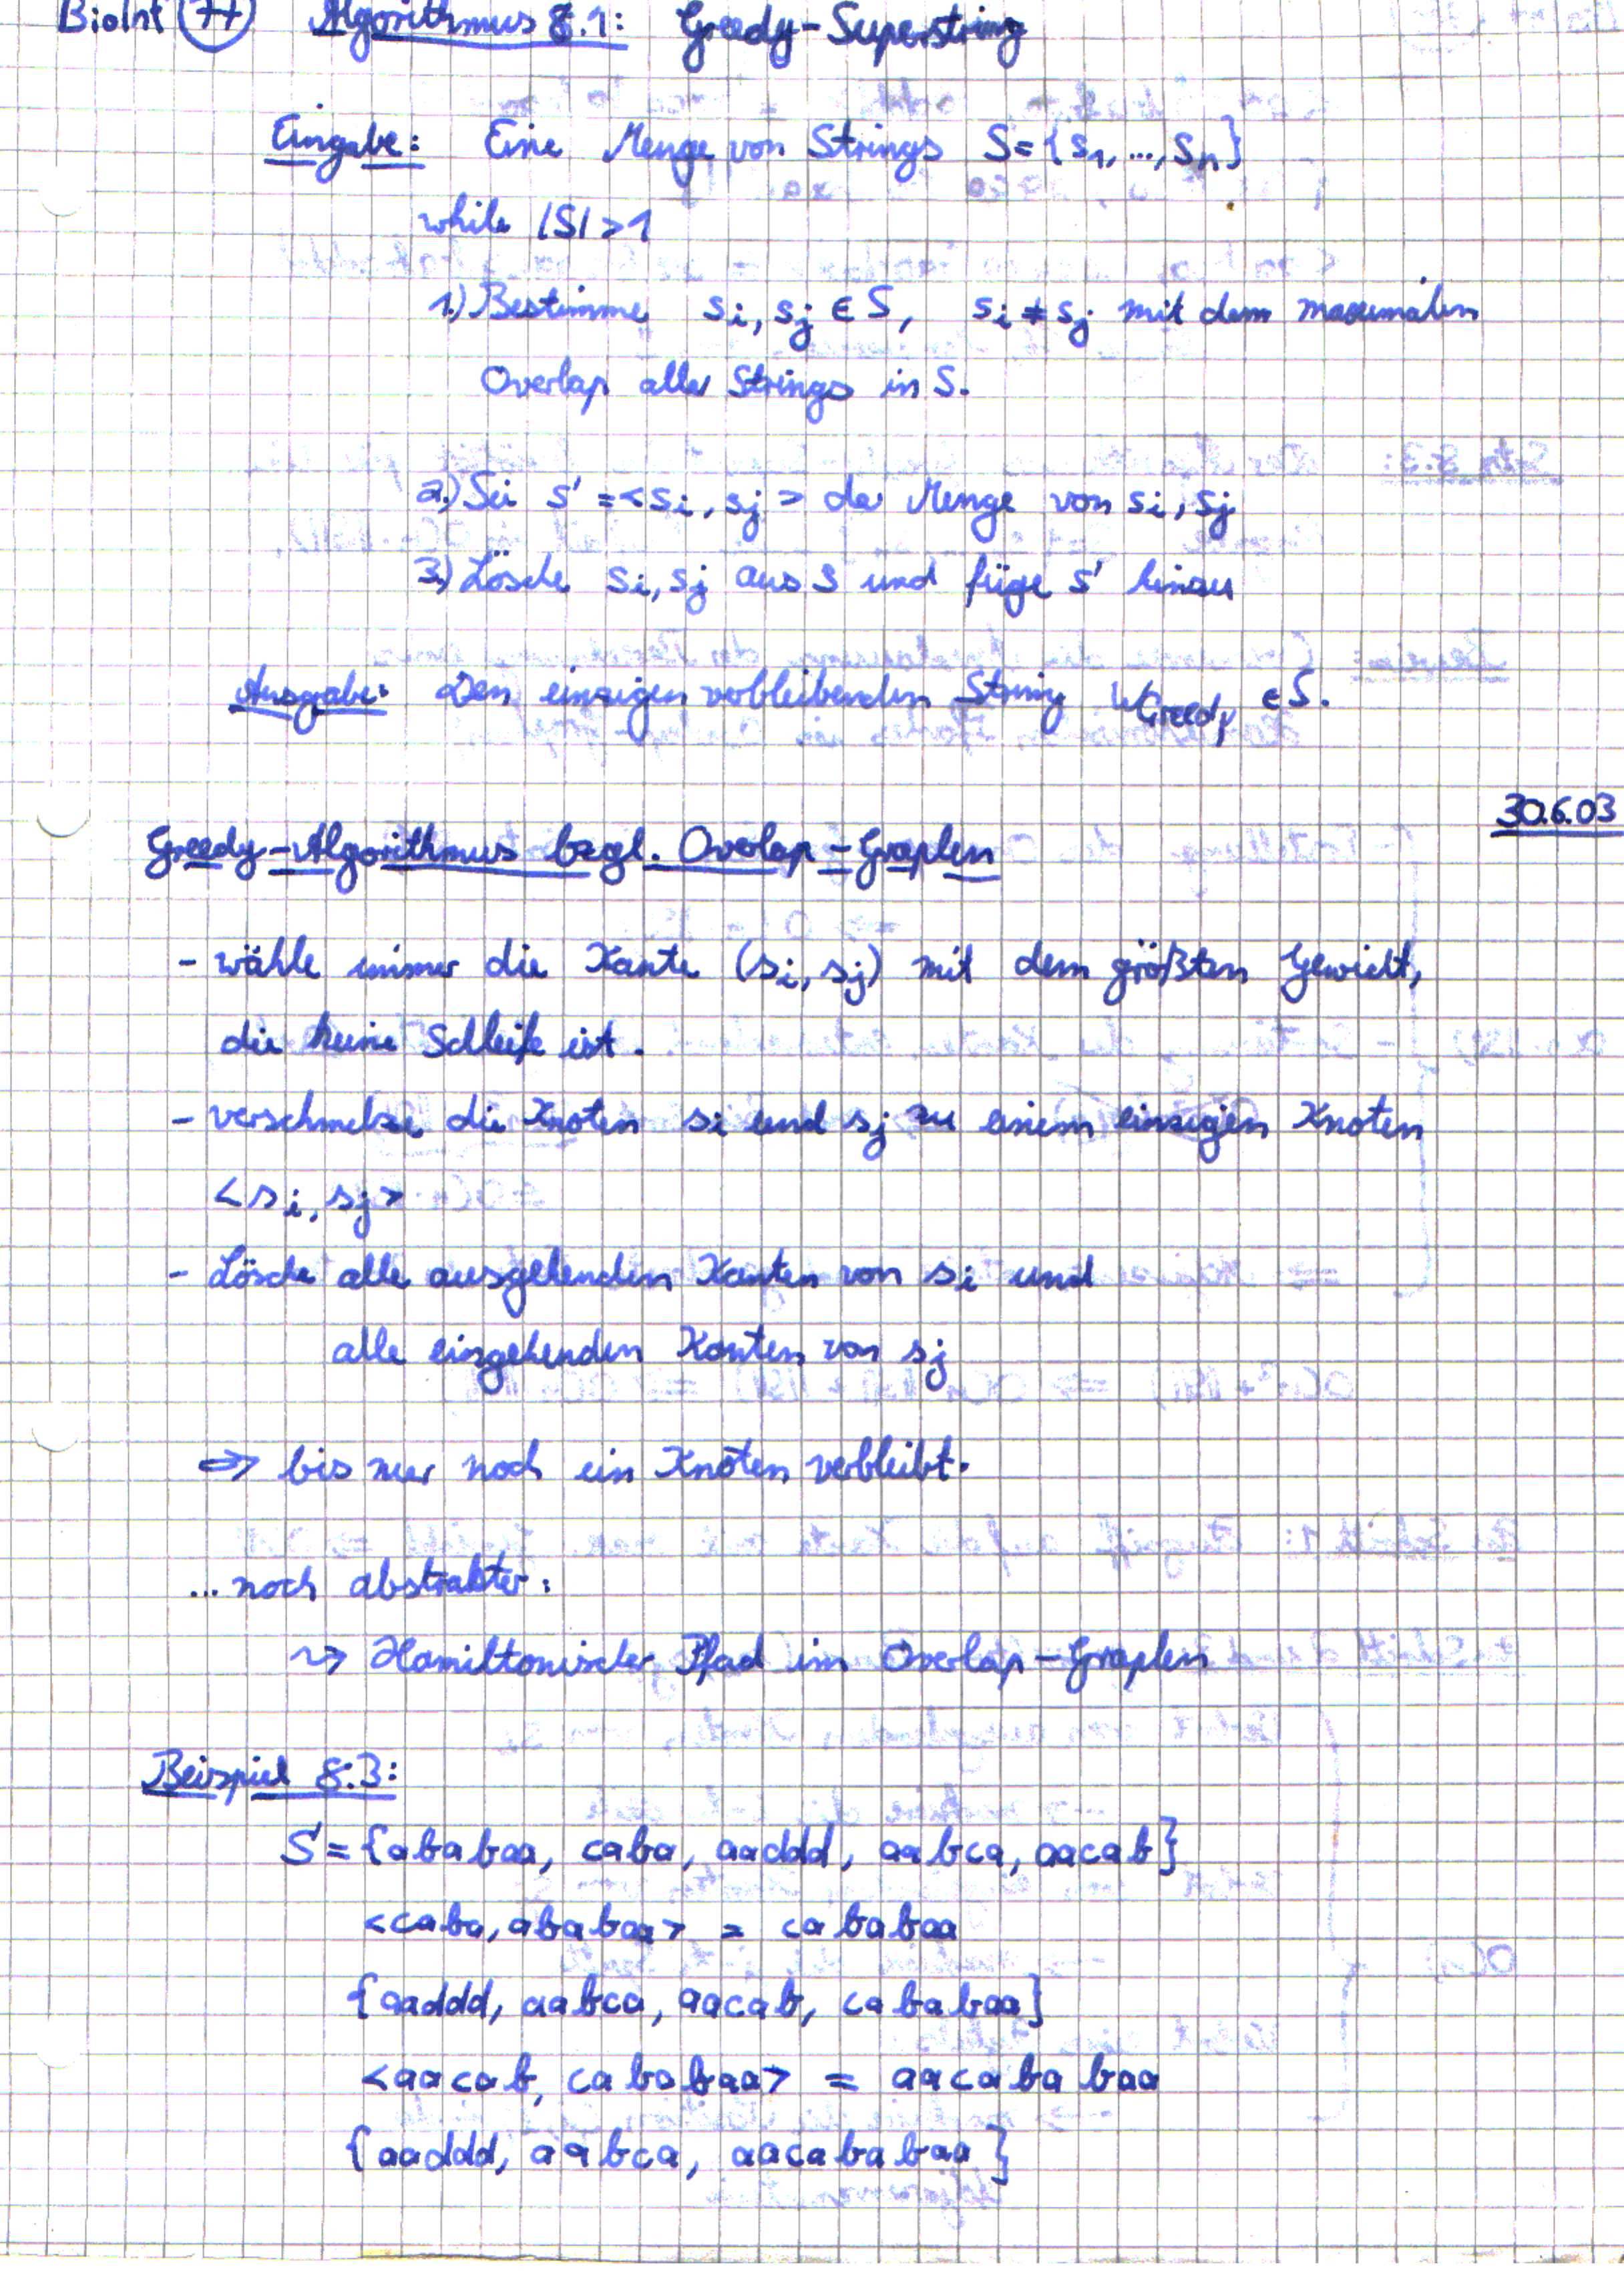 BioInf 77 Algorithmus 8.1: Greedy-Superstring
Eingabe: Eine Menge von Strings S = {s1, ..., sn}
while |S| > 1
1.) Bestimme si, sj ∈ S, si ≠ sj mit dem maximalen
Overlap aller Strings in S.
2.) Sei s' = <si, sj> der Menge von si, sj
3.) Lösche si, sj aus S und füge s' hinzu
Ausgabe: Den einzigen verbleibenden String WGreedy ∈ S.
30.6.03
Greedy-Algorithmus bzgl. Overlap-Graphen
- wähle immer die Kante (si, sj) mit dem größten Gewicht,
die keine Schleife ist.
- verschmelze die Knoten si und sj zu einem einzigen Knoten
<si, sj>
- Lösche alle ausgehenden Kanten von si und
alle eingehenden Kanten von sj
⇒ bis nur noch ein Knoten verbleibt.
... noch abstrakter:
↝ Hamiltonischer Pfad im Overlap-Graphen
Beispiel 8.3:
S = {ababaa, caba, aaddd, aabca, aacab}
<caba, ababaa> = cababaa
{aaddd, aabca, aacab, cababaa}
<aacab, cababaa> = aacababaa
{aaddd, aabca, aacababaa}